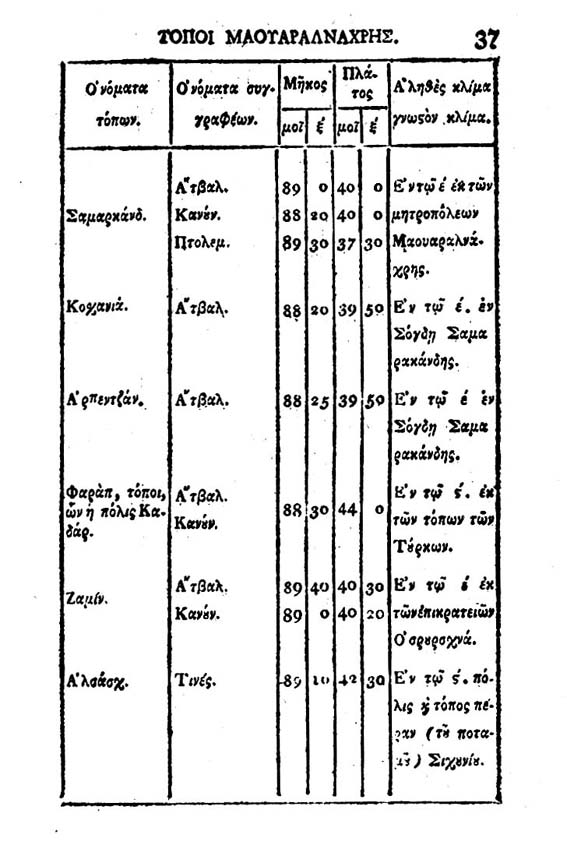 ΤΟΠΟΙ ΜΑΟΥΑΡΑΛΝΑΧΡΗΣ. 37
Ὀνόματα τόπων. Ὀνόματα συγγραφέων. Μῆκος Πλάτος Ἀληθὲς κλίμα
μοῖ ἑ μοῖ ἑ γνωστὸν κλίμα.
Ἄτβαλ. 89 0 40 0 Ἐν τῷ έ ἐκ τῶν
Σαμαρκάνδ. Κανούν. 88 20 40 0 μητροπόλεων
Πτολεμ. 89 30 37 30 Μαουαραλνά-
χρης.
Κοχανιά. Ἄτβαλ. 88 20 39 50 Ἐν τῷ έ. ἐν
Σόγδῃ Σαμα
ρακάνδης.
Ἀρπεντζάν. Ἄτβαλ. 88 25 39 50 Ἐν τῷ έ ἐν
Σόγδῃ Σαμα
ρακάνδης.
Φαράπ, τόποι, Ἄτβαλ. Ἐν τῷ ϛ́. ἐκ
ὧν ἡ πόλις Κα- Κανούν. 88 30 44 0 τῶν τόπων τῶν
δάρ. Τούρκων.
Ἄτβαλ. 89 40 40 30 Ἐν τῷ έ ἐκ
Ζαμίν. Κανούν. 89 0 40 20 τῶν ἐπικρατειῶν
Ὀσρουρσχνά.
Ἀλσάσχ. Τινές. 89 10 42 30 Ἐν τῷ ϛ́. πό-
λις ϗ τόπος πέ-
ραν (τοῦ ποτα-
μοῦ) Σιχουνίου.